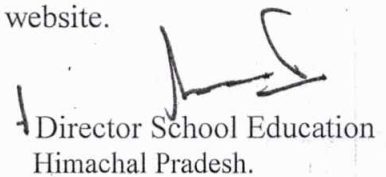 website.
Director School Education
Himachal Pradesh.